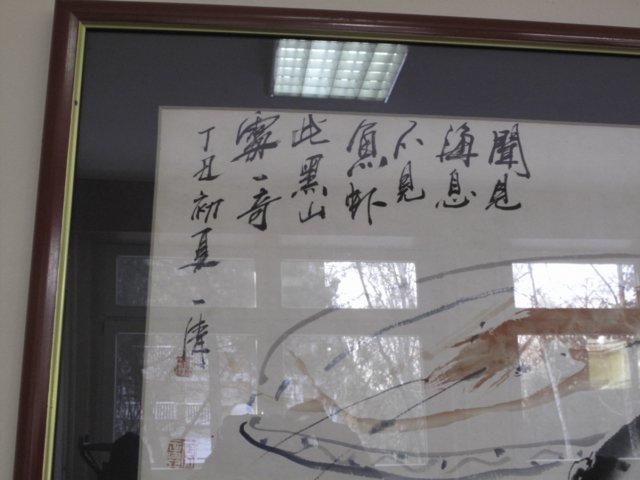 聞見
海息
不見
魚虾
此黑山
一奇
丁丑初夏一